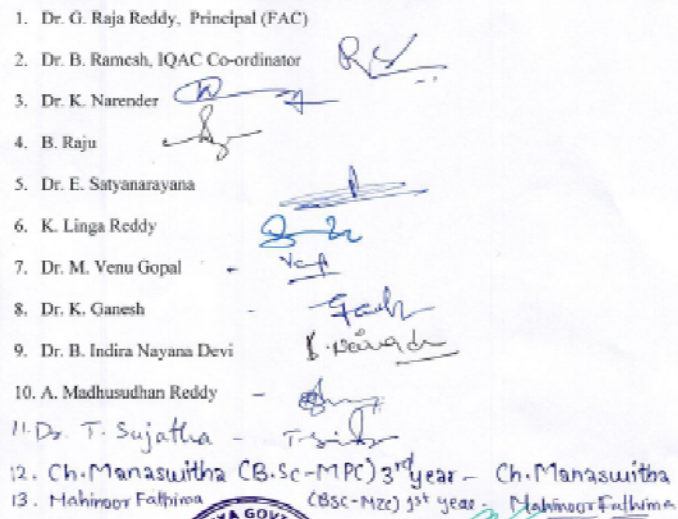 1. Dr. G. Raja Reddy, Principal (FAC)
2. Dr. B. Ramesh, IQAC Co-ordinator
3. Dr. K. Narender
4. B. Raju
5. Dr. E. Satyanarayana
6. K. Linga Reddy
7. Dr. M. Venu Gopal -
8. Dr. K. Ganesh -
9. Dr. B. Indira Nayana Devi
10. A. Madhusudhan Reddy -
11. Dr. T. Sujatha -
12. Ch. Manaswitha (B.Sc-MPC) 3rd year - Ch. Manaswitha
13. Mahinoor Fathima (BSC-MZC) 1st year - Mahinoor Fathima